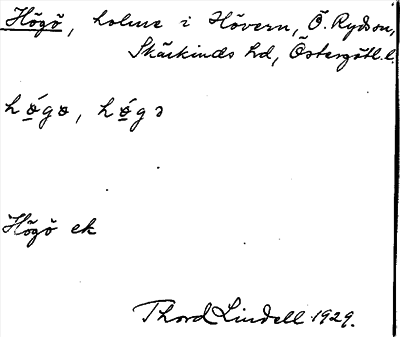 Högö, holme i Hövern, Ö. Ryds sn,
Skärkinds hd, Östergötl. l.
hǿ̱gø, hǿ̱gə
Högö ek
Thord Lindell 1929.